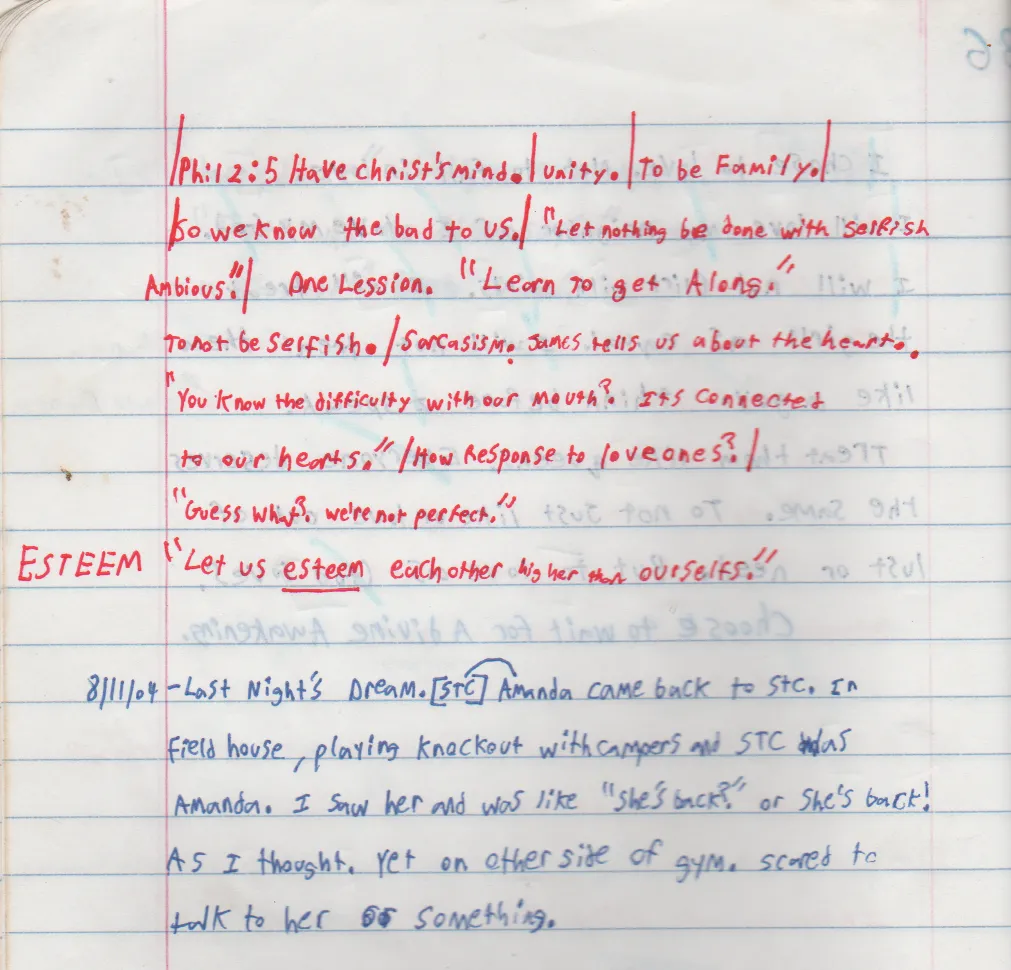 36
/Phil 2:5 Have christ's mind./ unity./ To be Family./
/So we know the bad to us./ "Let nothing be done with selfish
Ambious."/ One Lession. "Learn To get Along."
To not be selfish./ Sarcasism. James tells us about the heart.
"You know the difficulty with our mouth? Its connected
to our hearts."/How Response to loveones?/
"Guess what? we're not perfect."
ESTEEM "Let us esteem each other higher than ourselfs."
8/11/04 - Last Night's Dream. [STC] Amanda came back to STC. In
Field house, playing knockout with campers and STC was
Amanda. I saw her and was like "she's back?" or She's back!
As I thought. Yet on other side of gym. scared to
talk to her or something.